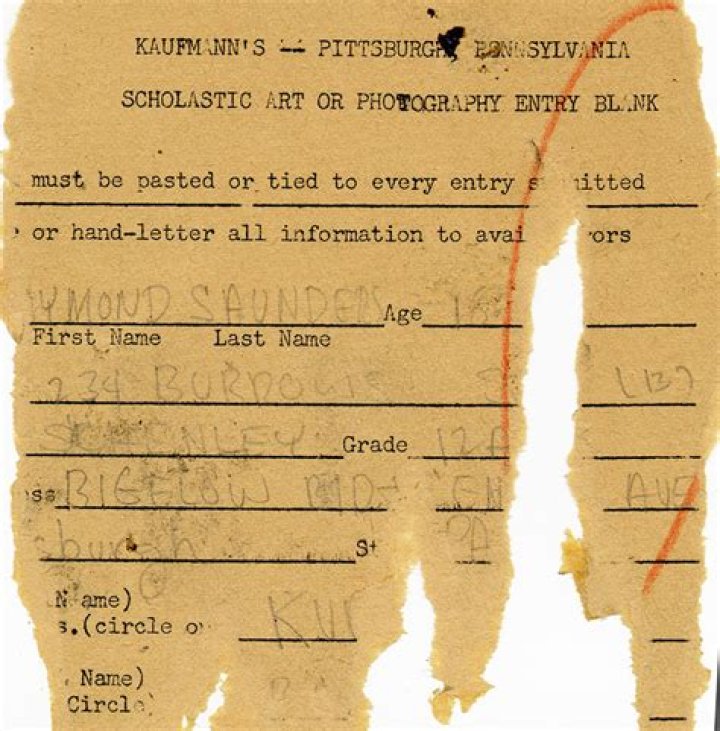 KAUFMANN'S -- PITTSBURGH, PENNSYLVANIA
SCHOLASTIC ART OR PHOTOGRAPHY ENTRY BLANK
must be pasted or tied to every entry s mitted
or hand-letter all information to avai ors
YMOND SAUNDERS Age
First Name Last Name
234
SCHENLEY Grade 12A
ss BIGELOW AVE
burgh St PA
N ame)
s.(circle o
Name)
Circle